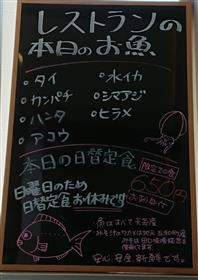 レストランの
本日のお魚
・タイ
・カンパチ
・ハンタ
・アコウ
・水イカ
・シマアジ
・ヒラメ
本日の日替定食
限定20食
650円
お刺身付
日曜日のため
日替定食お休みです
・魚はすべて天然産
安心、安全、新鮮です。